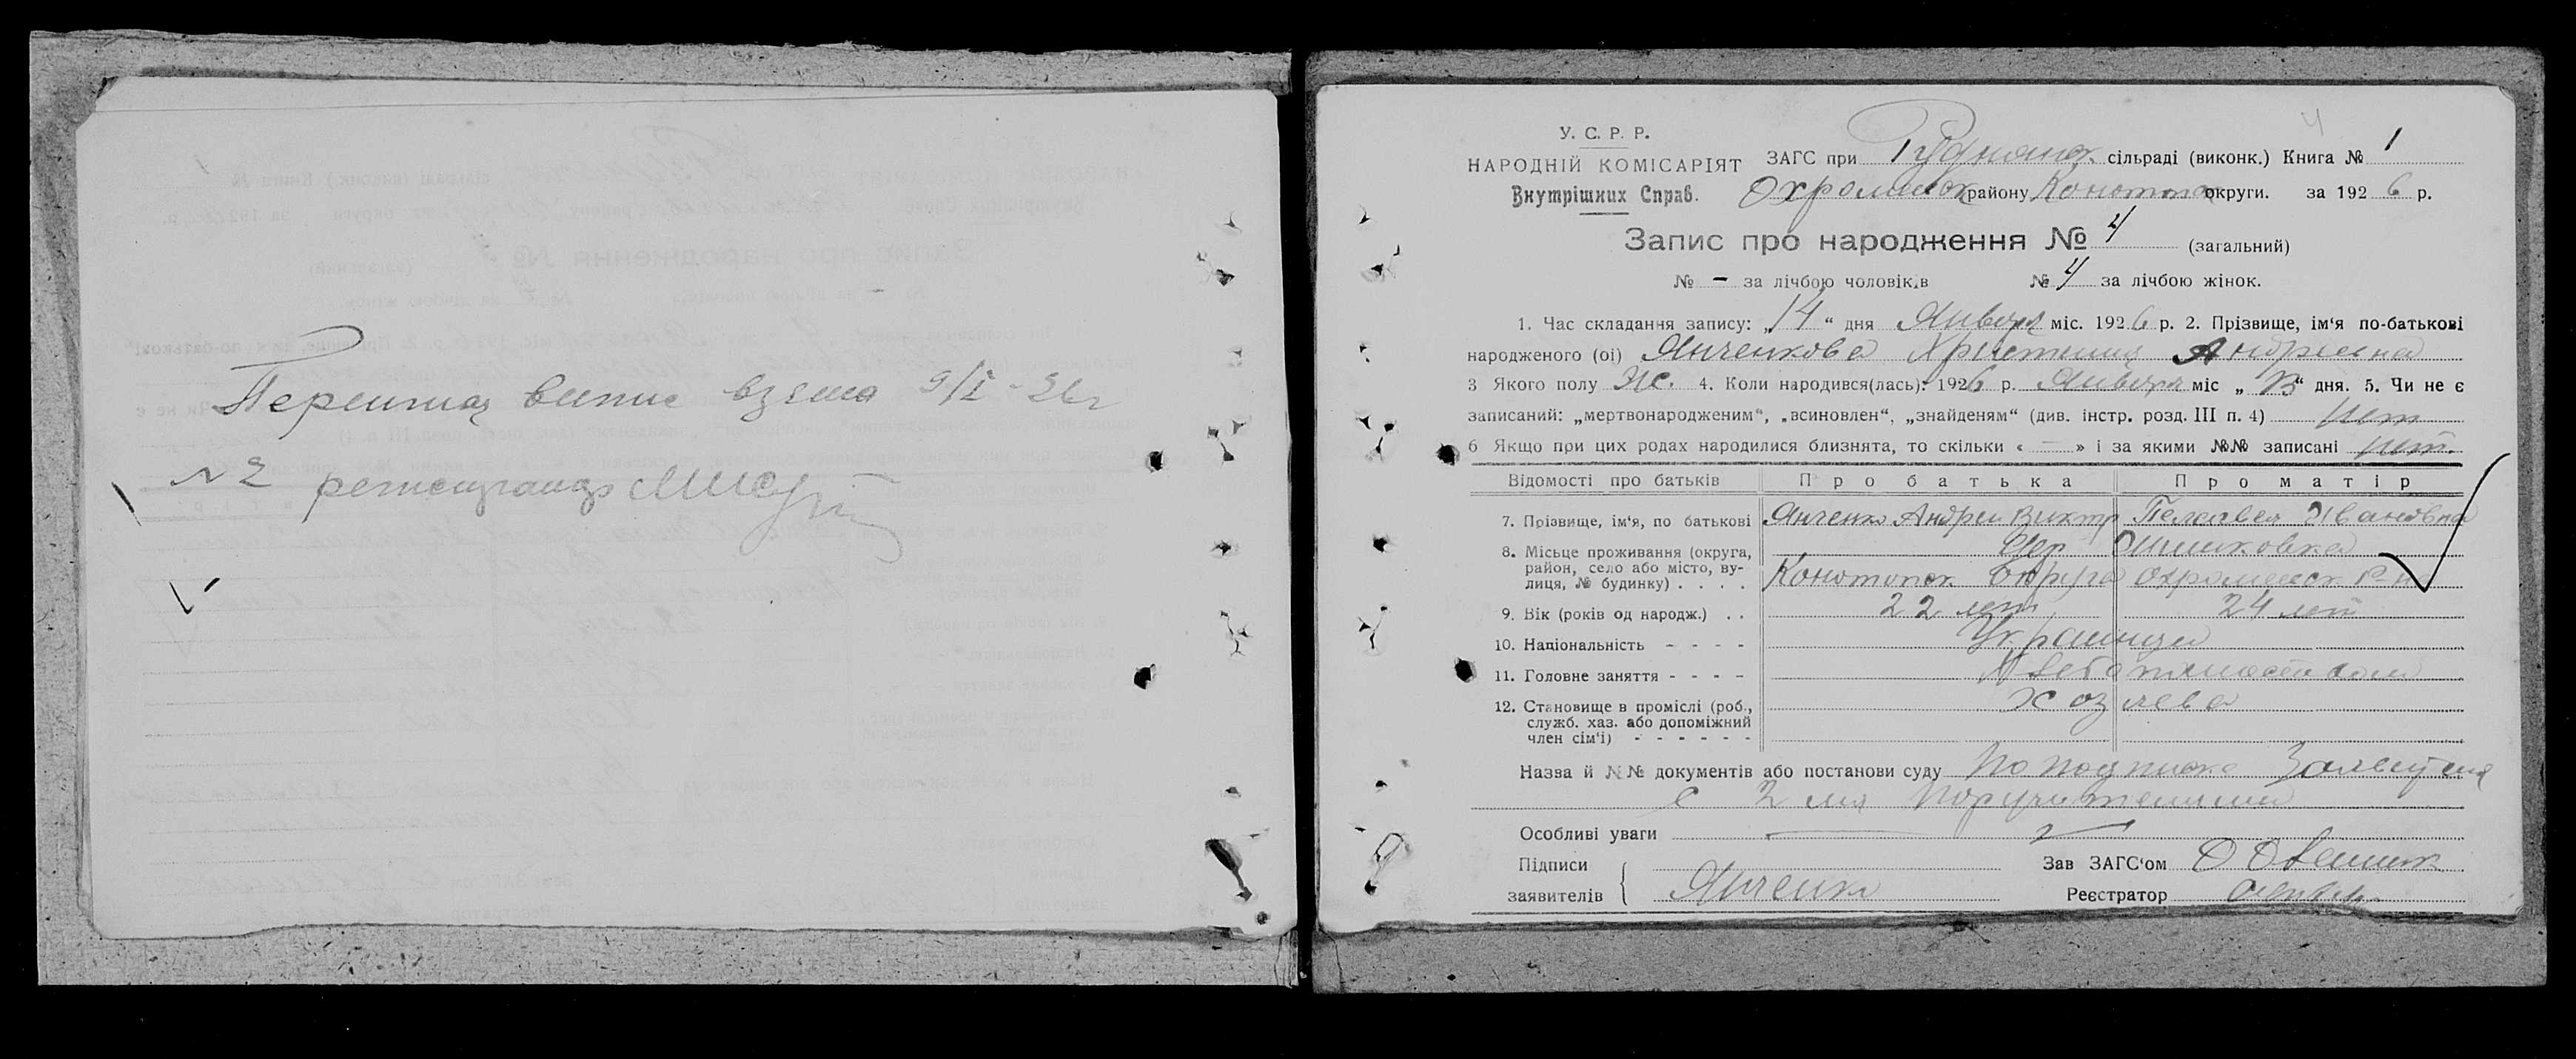 Перший випис взято 9/I-26г
№ 2
У. С. Р. Р.
НАРОДНІЙ КОМІСАРІЯТ
Внутрішних Справ.
ЗАГС при сільраді (виконк.) Книга № 1
району Конотоп округи. за 1926 р.
Запис про народження № 4 (загальний)
№ - за лічбою чоловіків № 4 за лічбою жінок.
1. Час складання запису: „14“ дня Января міс. 1926 р. 2. Прізвище, ім‘я по-батькові
народженого (ої) Янченкова Христина Андреевна
3 Якого полу Ж. 4. Коли народився(лась): 1926 р. Января міс „13“ дня. 5. Чи не є
записаний: „мертвонародженим“, „всиновлен“, „знайденям“ (див. інстр. розд. III п. 4) нет
6 Якщо при цих родах народилися близнята, то скільки « — » і за якими №№ записані нет.
Відомості про батьків Про батька Про матір
7. Прізвище, ім‘я, по батькові Янченко Андрей Виктр Пелагея Ивановна
8. Місьце проживання (округа, район, село або місто, вулиця, № будинку) . . . . дер Шишковка
Конотопск Округа
9. Вік (років од народж.) . . 22 лет 24 лет
10. Національність - - - - Украинцы
11. Головне заняття - - - -
12. Становище в проміслі (роб., служб. хаз. або допоміжний член сім‘ї) - - - - - - хозяева
Назва й №№ документів або постанови суду По подписке
с 2 мя поручителями
Особливі уваги
Підписи
заявителів Янченко
Зав ЗАГС‘ом
Реєстратор